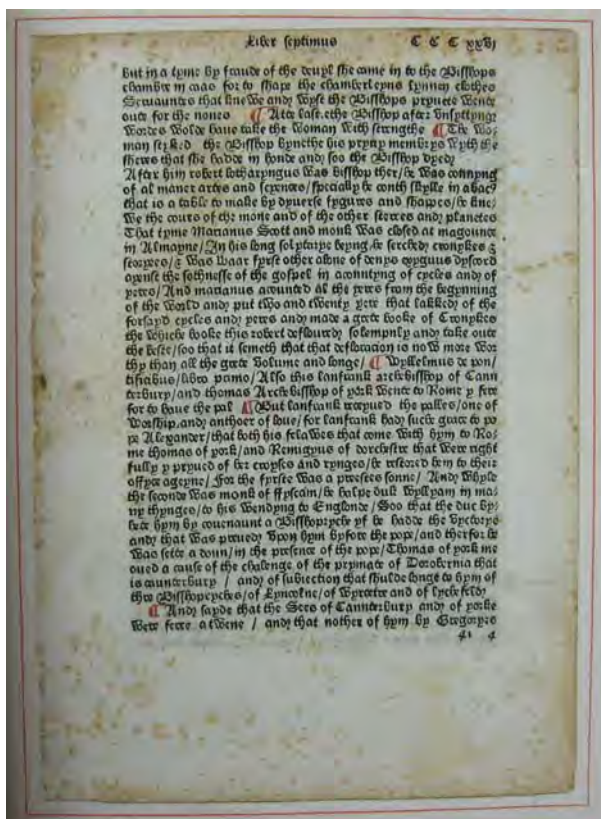 Liber septimus C C C xxvj
but in a tyme by fraude of the deuyl she came in to the Bisshops
chambre in maad for to shape the chamberleyns lynnen clothes
Seruauntes that knewe and wyst the Bisshops pryuete wente
oute for the nones ¶ Atte laste the Bisshop after vnsyttynge
wordes wolde haue take the woman with strengthe ¶ The wo
man styked the Bisshop bynethe his pryuy membrys wyth the
sheres that she hadde in honde and soo the Bisshop dyed
After him robert lotharyngus was bisshop ther/ he was connyng
of al maner artes and scyences/ specially he couth skylle in abac
that is a table to make by dyuerse fygures and shappes/ & kne
we the cours of the mone and of the other sterres and planetes
That tyme Marianus Scott and monk was closed at magounce
in Almayne/ In his long solytarye beyng, he serched cronykes &
storyes/ & was waar fyrst other alone of denys exyguus dyscord
ayenst the sothnesse of the gospel in acountyng of cycles and of
yeres/ And marianus acounted al the yeres from the begynnyng
of the world and put two and twenty yere that lakked of the
forsayd cycles and yeres and made a grete booke of Cronykes
the whiche booke this robert defloured solempnly and take oute
the beste/ soo that it semeth that that defloracion is now more wor
thy than all the grete volume and longe/ ¶ Wyllelmus de pon/
tificibus/ libro primo/ Also this lanfrank archebisshop of Cann
terbury/ and thomas Archebisshop of york wente to Rome y fere
for to haue the pal ¶ But lanfrank receyued the palles/ one of
worship, and another of loue/ for lanfrank hadde suche grace to po
pe Alexander/ that both his felawes that come with hym to Ro/
me thomas of york/ and Remigyus of dorchestre that were right
fully y pryued of her croyses and rynges/ he restored hem to their
offyce ageyne/ For the fyrste was a preestes sonne/ And whyle
the seconde was monk of ffyscam/ he halpe duk wyllyam in ma/
ny thynges/ to his wendyng to Englonde/ Soo that the duc by/
hete hym by couenaunt a Bisshopryche yf he hadde the vyctorye
and that was preued vpon hym byfore the pope/ and therfor he
was sette a doun/ in the presence of the pope/ Thomas of york me
oued a cause of the chalenge of the prymate of Dorobernia that
is caunterbury / and of subiection that shulde longe to hym of
thre Bisshopryches/ of Lyncolne/ of wyrcetre and of lychefeld
¶ And sayde that the Sees of Cannterbury and of yorke
were ferre atwene / and that nother of hym by Gregoryes
41 4